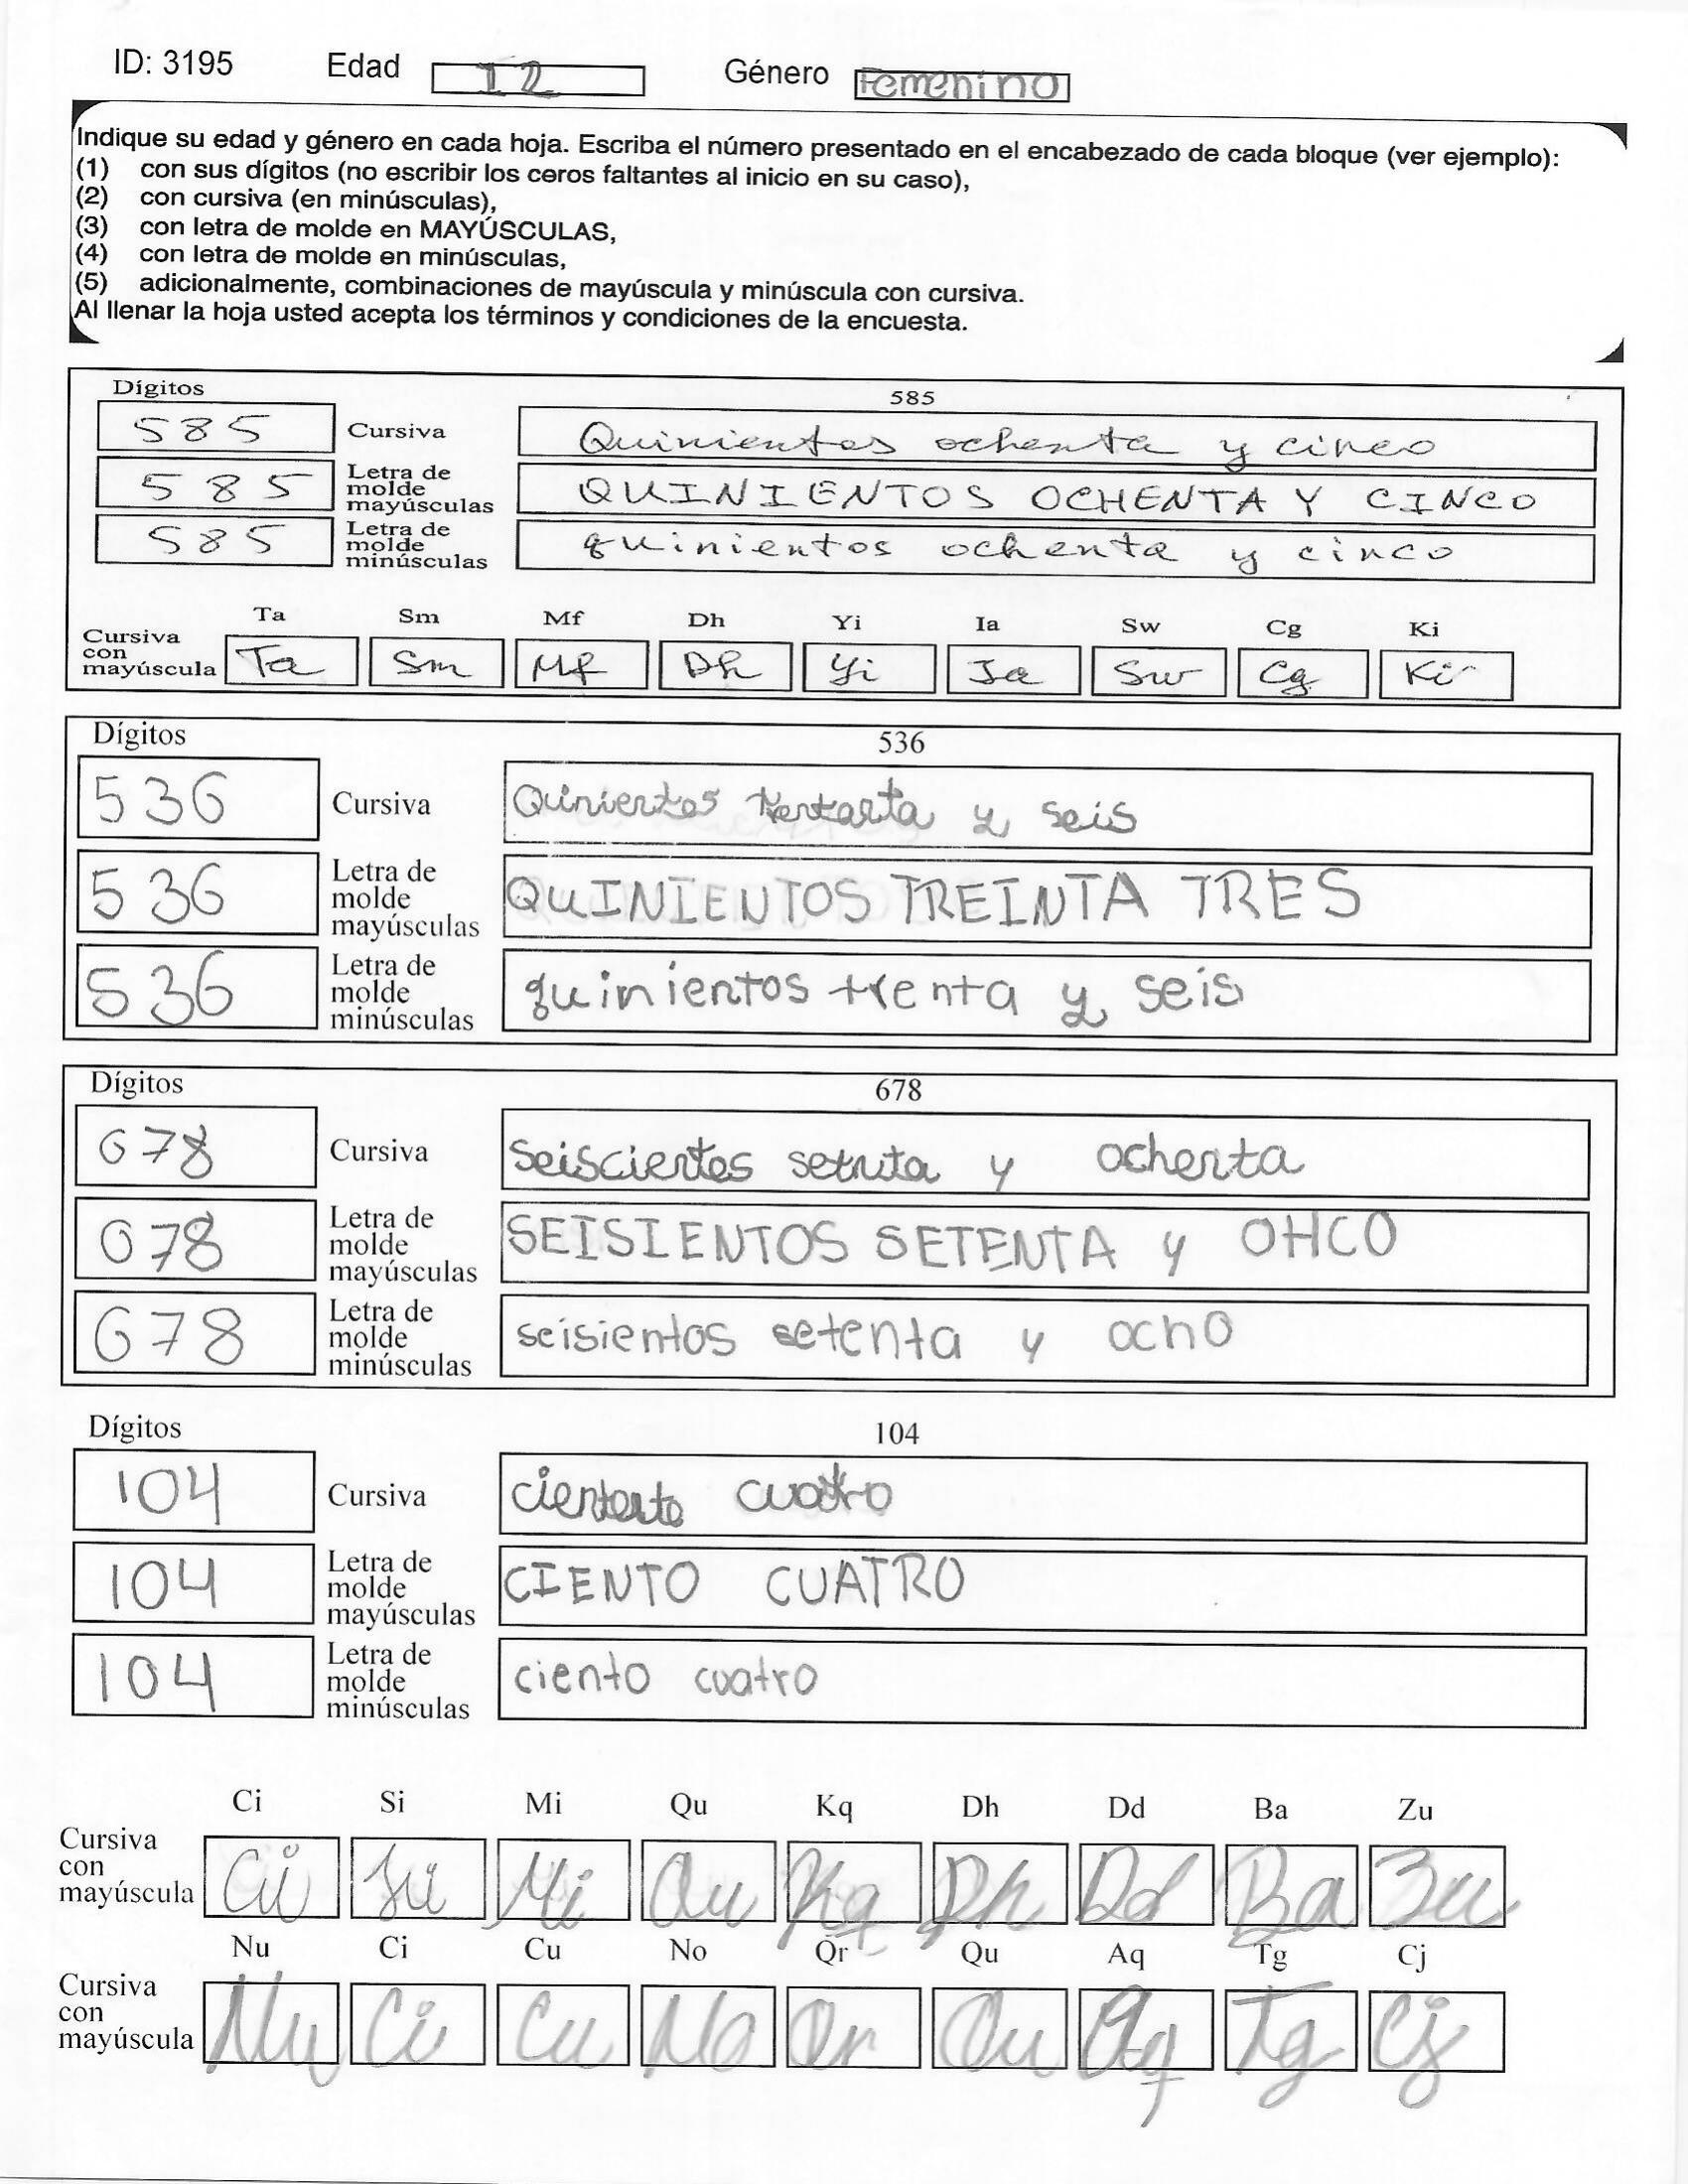 ID: 3195 Edad 12 Género Femenino
Indique su edad y género en cada hoja. Escriba el número presentado en el encabezado de cada bloque (ver ejemplo):
(1) con sus dígitos (no escribir los ceros faltantes al inicio en su caso),
(2) con cursiva (en minúsculas),
(3) con letra de molde en MAYÚSCULAS,
(4) con letra de molde en minúsculas,
(5) adicionalmente, combinaciones de mayúscula y minúscula con cursiva.
Al llenar la hoja usted acepta los términos y condiciones de la encuesta.
Dígitos 585
585 Cursiva Quinientos ochenta y cinco
585 Letra de molde mayúsculas QUINIENTOS OCHENTA Y CINCO
585 Letra de molde minúsculas quinientos ochenta y cinco
Ta Sm Mf Dh Yi Ia Sw Cg Ki
Cursiva con mayúscula Ta Sm Mf Dh Yi Ia Sw Cg Ki
Dígitos 536
536 Cursiva Quinientos y seis
536 Letra de molde mayúsculas QUINIENTOS TREINTA TRES
536 Letra de molde minúsculas quinientos trenta y seis
Dígitos 678
678 Cursiva seiscientos setnta y ochenta
678 Letra de molde mayúsculas SEISIENTOS SETENTA y OHCO
678 Letra de molde minúsculas seisientos setenta y ocho
Dígitos 104
104 Cursiva cuatro
104 Letra de molde mayúsculas CIENTO CUATRO
104 Letra de molde minúsculas ciento cuatro
Ci Si Mi Qu Kq Dh Dd Ba Zu
Cursiva con mayúscula Ci Si Mi Qu Kq Dh Dd Ba Zu
Nu Ci Cu No Qr Qu Aq Tg Cj
Cursiva con mayúscula Nu Ci Cu No Qr Qu Aq Tg Cj